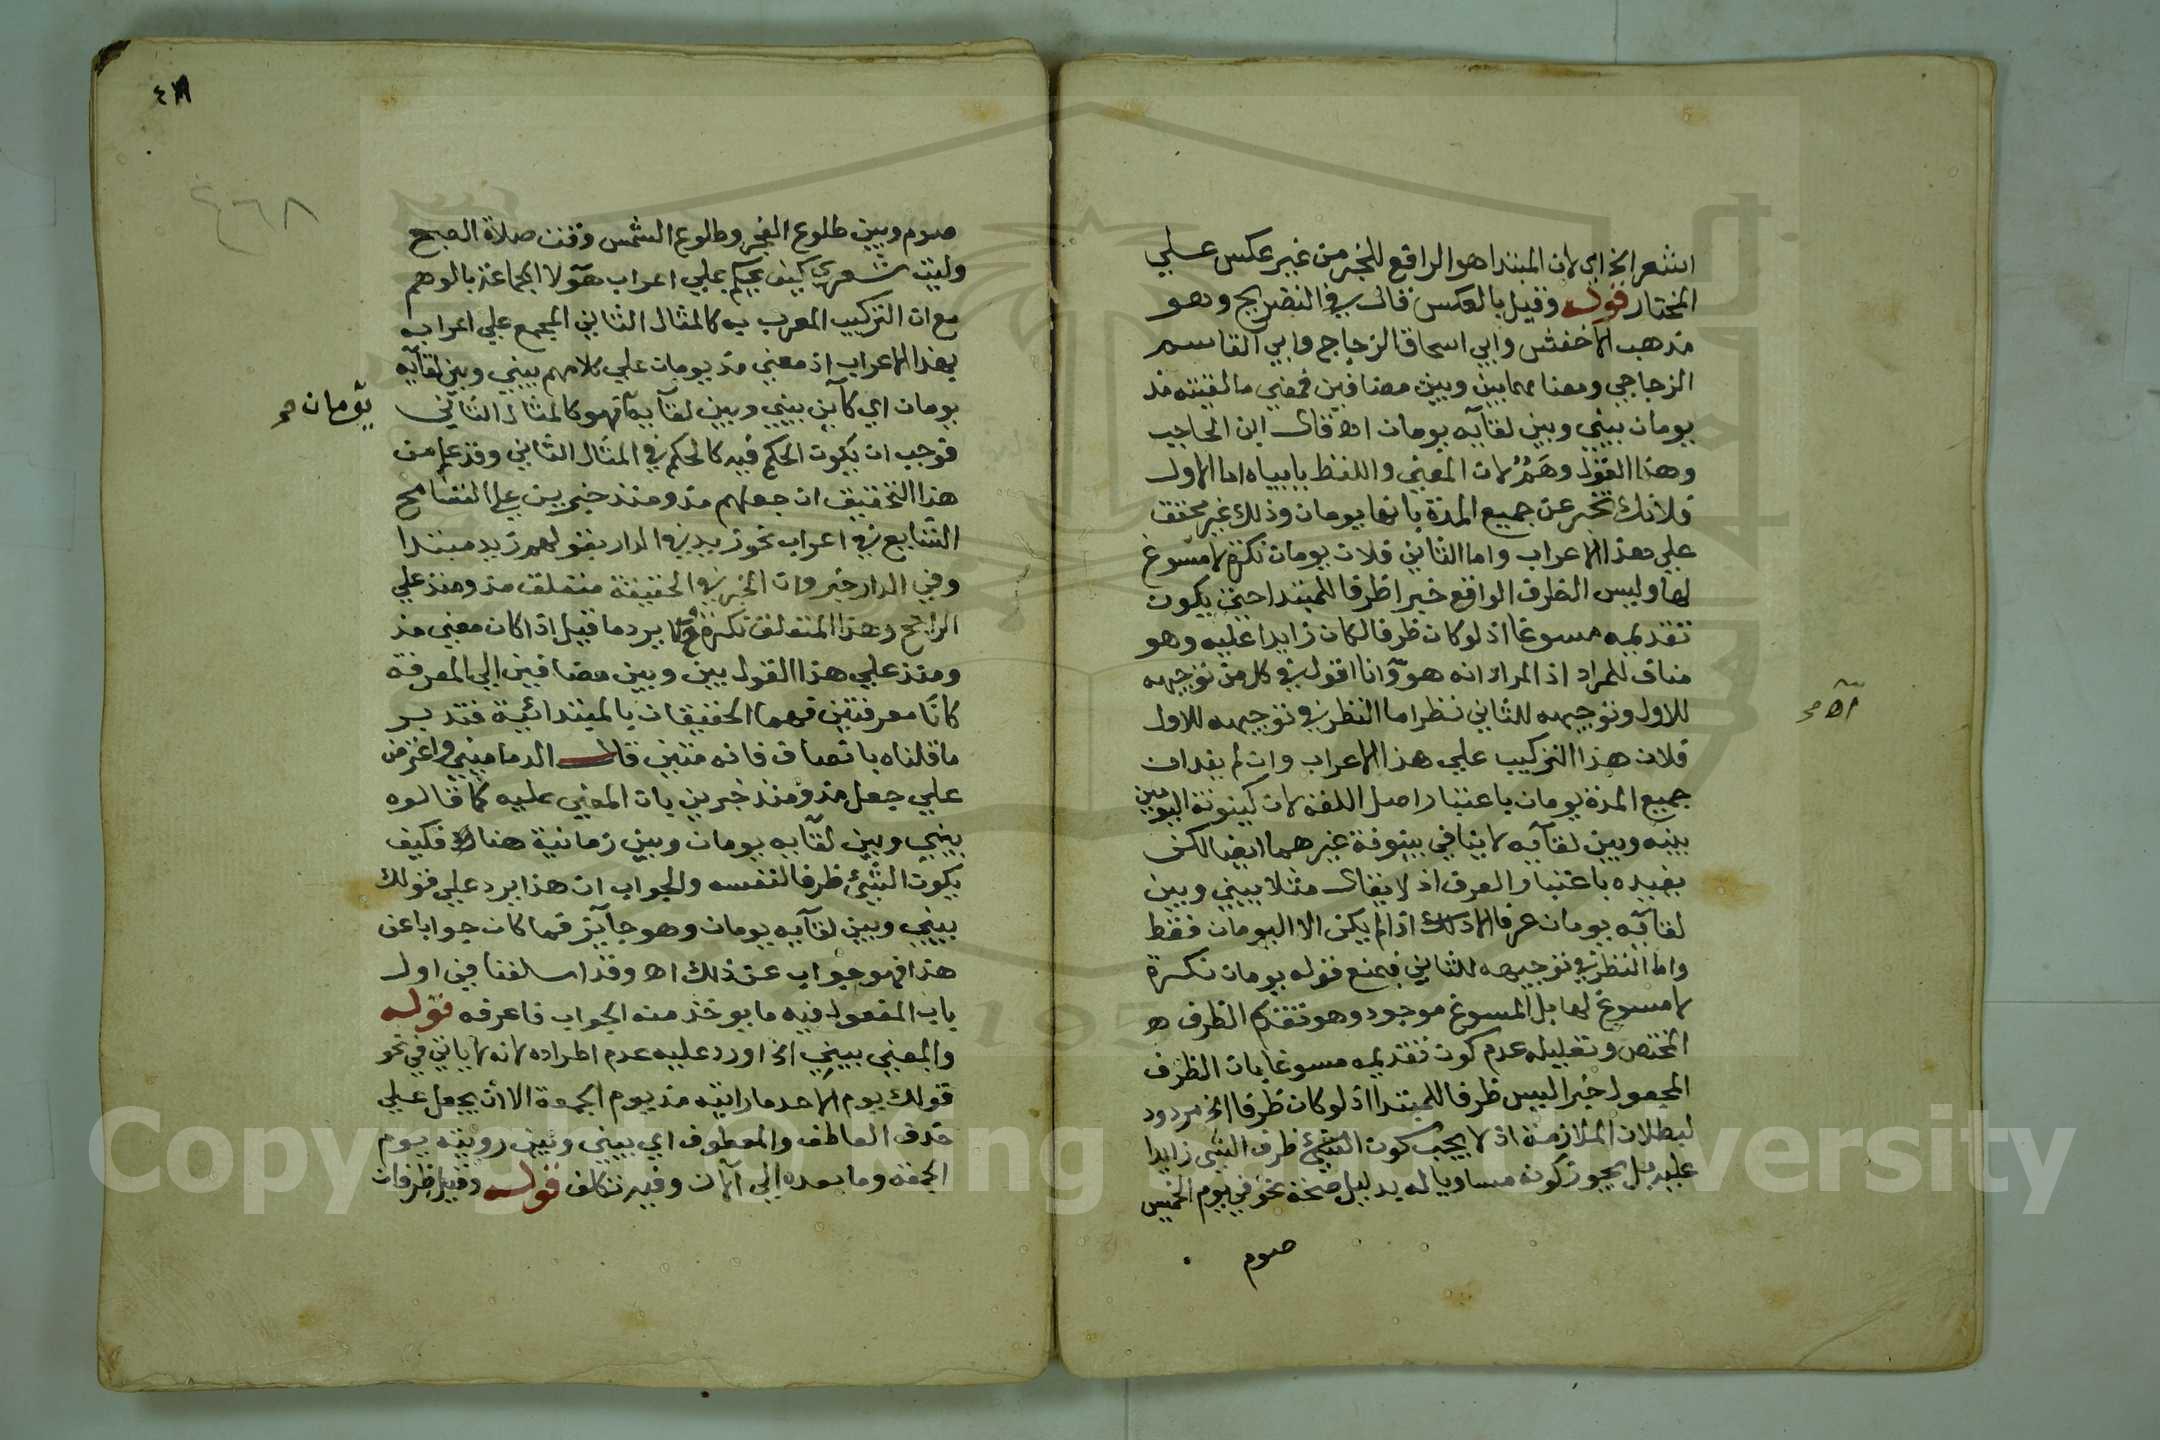 اشعر الخ اي لان المبتدا هو الرافع للخبر من غير عكس علي
المختار قوله وقيل بالعكس قال في التصريح وهو
مذهب الاخفش وابي اسحاق الزجاج وابي القاسم
الزجاجي ومعناهما بين وبين مضافين فمعني ما لقيته مذ
يومان بيني وبين لقآيه يومان اه قال ابن الحاجب
وهذا القول وهم لان المعني واللفظ يابياه اما الاول
فلانك تخبر عن جميع المدة بانها يومان وذلك غير محقق
علي هذا الاعراب واما الثاني فلان يومان نكرة لا مسوغ
لها وليس الظرف الواقع خبرا ظرفا للمبتدا حتي يكون
تقديمه مسوغا اذ لو كان ظرفا لكان زايدا عليه وهو
مناف للمراد اذ المراد انه هو وانا اقول في كل من توجيهه
اه صح
للاول وتوجيهه للثاني نظر اما النظر في توجيهه للاول
فلان هذا التركيب علي هذا الاعراب وان لم يفد ان
جميع المدة يومان باعتبار اصل اللغة لان كينونة اليومين
بينه وبين لقآيه لا ينافي بينونة غيرهما ايضا لكن
يفيده باعتبار العرف اذ لا يقال مثلا بيني وبين
لقآيه يومان عرفا الا ذلك اذا لم يكن الا اليومان فقط
واما النظر في توجيهه للثاني فيمنع قوله يومان نكرة
لا مسوغ لها بل المسوغ موجود وهو تقديم الظرف
المختص وتعليله عدم كون تقديمه مسوغا بان الظرف
المجعول خبرا ليس ظرفا للمبتدا اذ لو كان ظرفا الخ مردود
لبطلان الملازمة اذ لا يجب كون الشيئ ظرف الشي زايدا
عليه بل يجوز كونه مساويا له بدليل صحة نحو في يوم الخميس
صوم
٤٦٨
صوم وبين طلوع الفجر وطلوع الشمس وقت صلاة الصبح
وليت شعري كيف يحكم علي اعراب هؤلا الجماعة بالوهم
مع ان التركيب المعرب به كالمثال الثاني المجمع علي اعرابه
بهذا الاعراب اذ معني مذ يومان علي كلامهم بيني وبين لقآيه
يومان صح
يومان اي كآين بيني وبين لقآيه فهو كالمثال الثاني
فوجب ان يكون الحكم فيه كالحكم في المثال الثاني وقد علم من
هذا التحقيق ان جعلهم مذ ومنذ خبرين علي التسامح
الشايع في اعراب نحو زيد في الدار بقولهم زيد مبتدا
وفي الدار خبر وان الخبر في الحقيقة متعلق مذ ومنذ علي
الراجح وهذا المتعلق نكرة فلا يرد ما قيل اذا كان معني مذ
ومنذ علي هذا القول بين وبين مضافين الي المعرفة
كانا معرفتين فهما الحقيقان بالمبتدائية فتدبر
ما قلناه بانصاف فانه متين قال الدماميني واعترض
علي جعل مذ ومنذ خبرين بان المعني عليه كما قالوه
بيني وبين لقآيه يومان وبين زمانية هنا فكيف
يكون الشيئ ظرفا لنفسه والجواب ان هذا يرد علي قولك
بيني وبين لقآيه يومان وهو جآيز فما كان جوابا عن
هذا فهو جواب عن ذلك اه وقد اسلفنا في اول
باب المفعول فيه ما يوخذ منه الجواب فاعرفه قوله
والمعني بيني الخ اورد عليه عدم اطراده لانه لا ياتي في نحو
قولك يوم الاحد ما رايته مذ يوم الجمعة الا ان يجعل علي
حذف العاطف والمعطوف اي بيني وبين رويته يوم
الجمعة وما بعده الي الآن وفيه تكلف قوله وقيل ظرفان
Copyright © King Saud University